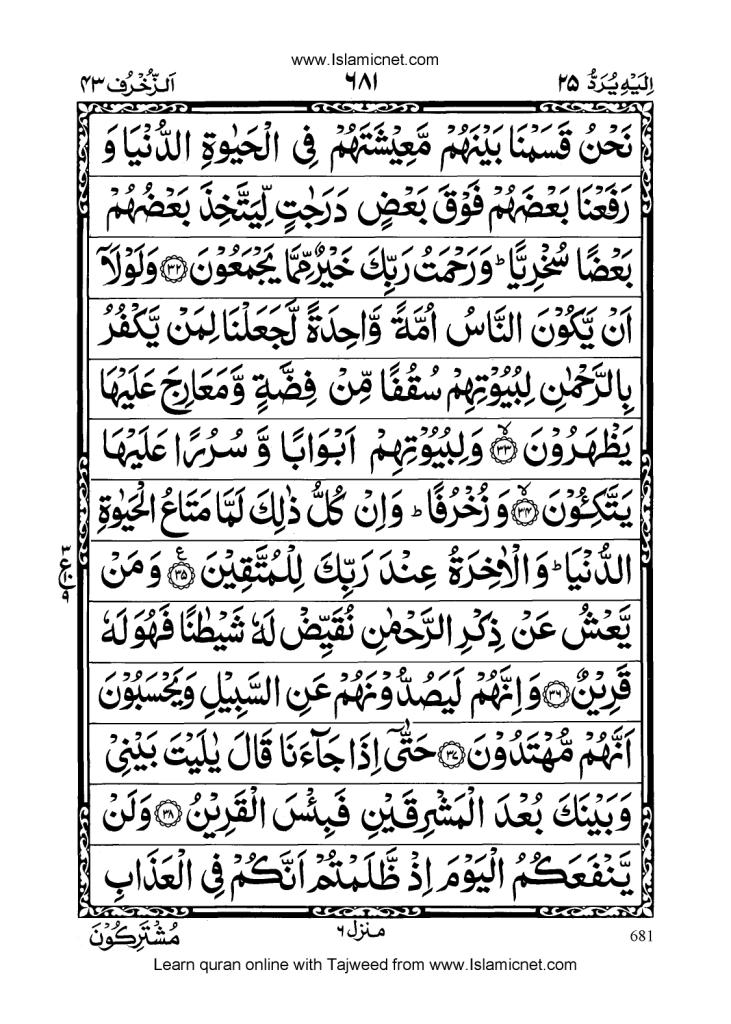 www.Islamicnet.com
اِلَیْهِ یُرَدُّ ۲۵
٦٨١
اَلزُّخْرُف ۴۳
نَحْنُ قَسَمْنَا بَیْنَهُمْ مَّعِیْشَتَهُمْ فِی الْحَیٰوةِ الدُّنْیَا وَ
رَفَعْنَا بَعْضَهُمْ فَوْقَ بَعْضٍ دَرَجٰتٍ لِّیَتَّخِذَ بَعْضُهُمْ
بَعْضًا سُخْرِیًّا ؕ وَرَحْمَتُ رَبِّكَ خَیْرٌ مِّمَّا یَجْمَعُوْنَ ﴿۳۲﴾ وَلَوْلَاۤ
اَنْ یَّكُوْنَ النَّاسُ اُمَّةً وَّاحِدَةً لَّجَعَلْنَا لِمَنْ یَّكْفُرُ
بِالرَّحْمٰنِ لِبُیُوْتِهِمْ سُقُفًا مِّنْ فِضَّةٍ وَّمَعَارِجَ عَلَیْهَا
یَظْهَرُوْنَ ﴿۳۳﴾ۙ وَلِبُیُوْتِهِمْ اَبْوَابًا وَّ سُرُرًا عَلَیْهَا
یَتَّكِـُٔوْنَ ﴿۳۴﴾ۙ وَ زُخْرُفًا ؕ وَاِنْ كُلُّ ذٰلِكَ لَمَّا مَتَاعُ الْحَیٰوةِ
الدُّنْیَا ؕ وَالْاٰخِرَةُ عِنْدَ رَبِّكَ لِلْمُتَّقِیْنَ ﴿۳۵﴾ وَ مَنْ
یَّعْشُ عَنْ ذِكْرِ الرَّحْمٰنِ نُقَیِّضْ لَهٗ شَیْطٰنًا فَهُوَ لَهٗ
قَرِیْنٌ ﴿۳۶﴾ وَ اِنَّهُمْ لَیَصُدُّوْنَهُمْ عَنِ السَّبِیْلِ وَیَحْسَبُوْنَ
اَنَّهُمْ مُّهْتَدُوْنَ ﴿۳۷﴾ حَتّٰۤی اِذَا جَآءَنَا قَالَ یٰلَیْتَ بَیْنِیْ
وَبَیْنَكَ بُعْدَ الْمَشْرِقَیْنِ فَبِئْسَ الْقَرِیْنُ ﴿۳۸﴾ وَلَنْ
یَّنْفَعَكُمُ الْیَوْمَ اِذْ ظَّلَمْتُمْ اَنَّكُمْ فِی الْعَذَابِ
681
منزل ٦
مُشْتَرِكُوْنَ
Learn quran online with Tajweed from www.Islamicnet.com